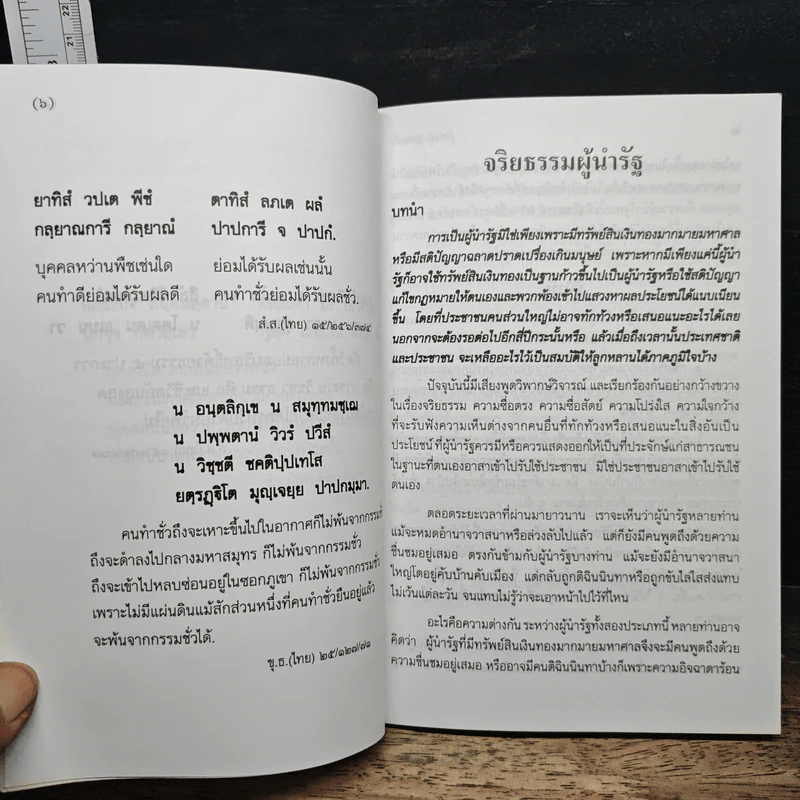 (๖)
ยาทิสํ วปเต พีชํ ตาทิสํ ลภเต ผลํ
กลฺยาณการี กลฺยาณํ ปาปการี จ ปาปกํ.
บุคคลหว่านพืชเช่นใด ย่อมได้รับผลเช่นนั้น
คนทำดีย่อมได้รับผลดี คนทำชั่วย่อมได้รับผลชั่ว.
สํ.ส.(ไทย) ๑๕/๒๕๖/๓๗๔
น อนฺตลิกฺเข น สมุทฺทมชฺเฌ
น ปพฺพตานํ วิวรํ ปวีสํ
น วิชฺชตี ชคติปฺปเทโส
ยตฺรฏฺฐิโต มุญฺเจยฺย ปาปกมฺมา.
คนทำชั่วถึงจะเหาะขึ้นไปในอากาศก็ไม่พ้นจากกรรมชั่ว
ถึงจะดำลงไปกลางมหาสมุทร ก็ไม่พ้นจากกรรมชั่ว
ถึงจะเข้าไปหลบซ่อนอยู่ในซอกภูเขา ก็ไม่พ้นจากกรรมชั่ว
เพราะไม่มีแผ่นดินแม้สักส่วนหนึ่งที่คนทำชั่วยืนอยู่แล้ว
จะพ้นจากกรรมชั่วได้.
ขุ.ธ.(ไทย) ๒๕/๑๒๗/๗๑
จริยธรรมผู้นำรัฐ
บทนำ
การเป็นผู้นำรัฐมิใช่เพียงเพราะมีทรัพย์สินเงินทองมากมายมหาศาล
หรือมีสติปัญญาฉลาดปราดเปรื่องเกินมนุษย์ เพราะหากมีเพียงแค่นี้ผู้นำ
รัฐก็อาจใช้ทรัพย์สินเงินทองเป็นฐานก้าวขึ้นไปเป็นผู้นำรัฐหรือใช้สติปัญญา
แก้ไขกฎหมายให้ตนเองและพวกพ้องเข้าไปแสวงหาผลประโยชน์ได้แนบเนียน
ขึ้น โดยที่ประชาชนคนส่วนใหญ่ไม่อาจทักท้วงหรือเสนอแนะอะไรได้เลย
นอกจากจะต้องรอต่อไปอีกสี่ปีกระนั้นหรือ แล้วเมื่อถึงเวลานั้นประเทศชาติ
และประชาชน จะเหลืออะไรไว้เป็นสมบัติให้ลูกหลานได้ภาคภูมิใจบ้าง
ปัจจุบันนี้มีเสียงพูดวิพากษ์วิจารณ์ และเรียกร้องกันอย่างกว้างขวาง
ในเรื่องจริยธรรม ความซื่อตรง ความซื่อสัตย์ ความโปร่งใส ความใจกว้าง
ที่จะรับฟังความเห็นต่างจากคนอื่นที่ทักท้วงหรือเสนอแนะในสิ่งอันเป็น
ประโยชน์ ที่ผู้นำรัฐควรมีหรือควรแสดงออกให้เป็นที่ประจักษ์แก่สาธารณชน
ในฐานะที่ตนเองอาสาเข้าไปรับใช้ประชาชน มิใช่ประชาชนอาสาเข้าไปรับใช้
ตนเอง
ตลอดระยะเวลาที่ผ่านมายาวนาน เราจะเห็นว่าผู้นำรัฐหลายท่าน
แม้จะหมดอำนาจวาสนาหรือล่วงลับไปแล้ว แต่ก็ยังมีคนพูดถึงด้วยความ
ชื่นชมอยู่เสมอ ตรงกันข้ามกับผู้นำรัฐบางท่าน แม้จะยังมีอำนาจวาสนา
ใหญ่โตอยู่คับบ้านคับเมือง แต่กลับถูกติฉินนินทาหรือถูกขับไล่ไสส่งแทบ
ไม่เว้นแต่ละวัน จนแทบไม่รู้ว่าจะเอาหน้าไปไว้ที่ไหน
อะไรคือความต่างกัน ระหว่างผู้นำรัฐทั้งสองประเภทนี้ หลายท่านอาจ
คิดว่า ผู้นำรัฐที่มีทรัพย์สินเงินทองมากมายมหาศาลจึงจะมีคนพูดถึงด้วย
ความชื่นชมอยู่เสมอ หรืออาจมีคนติฉินนินทาบ้างก็เพราะความอิจฉาตาร้อน